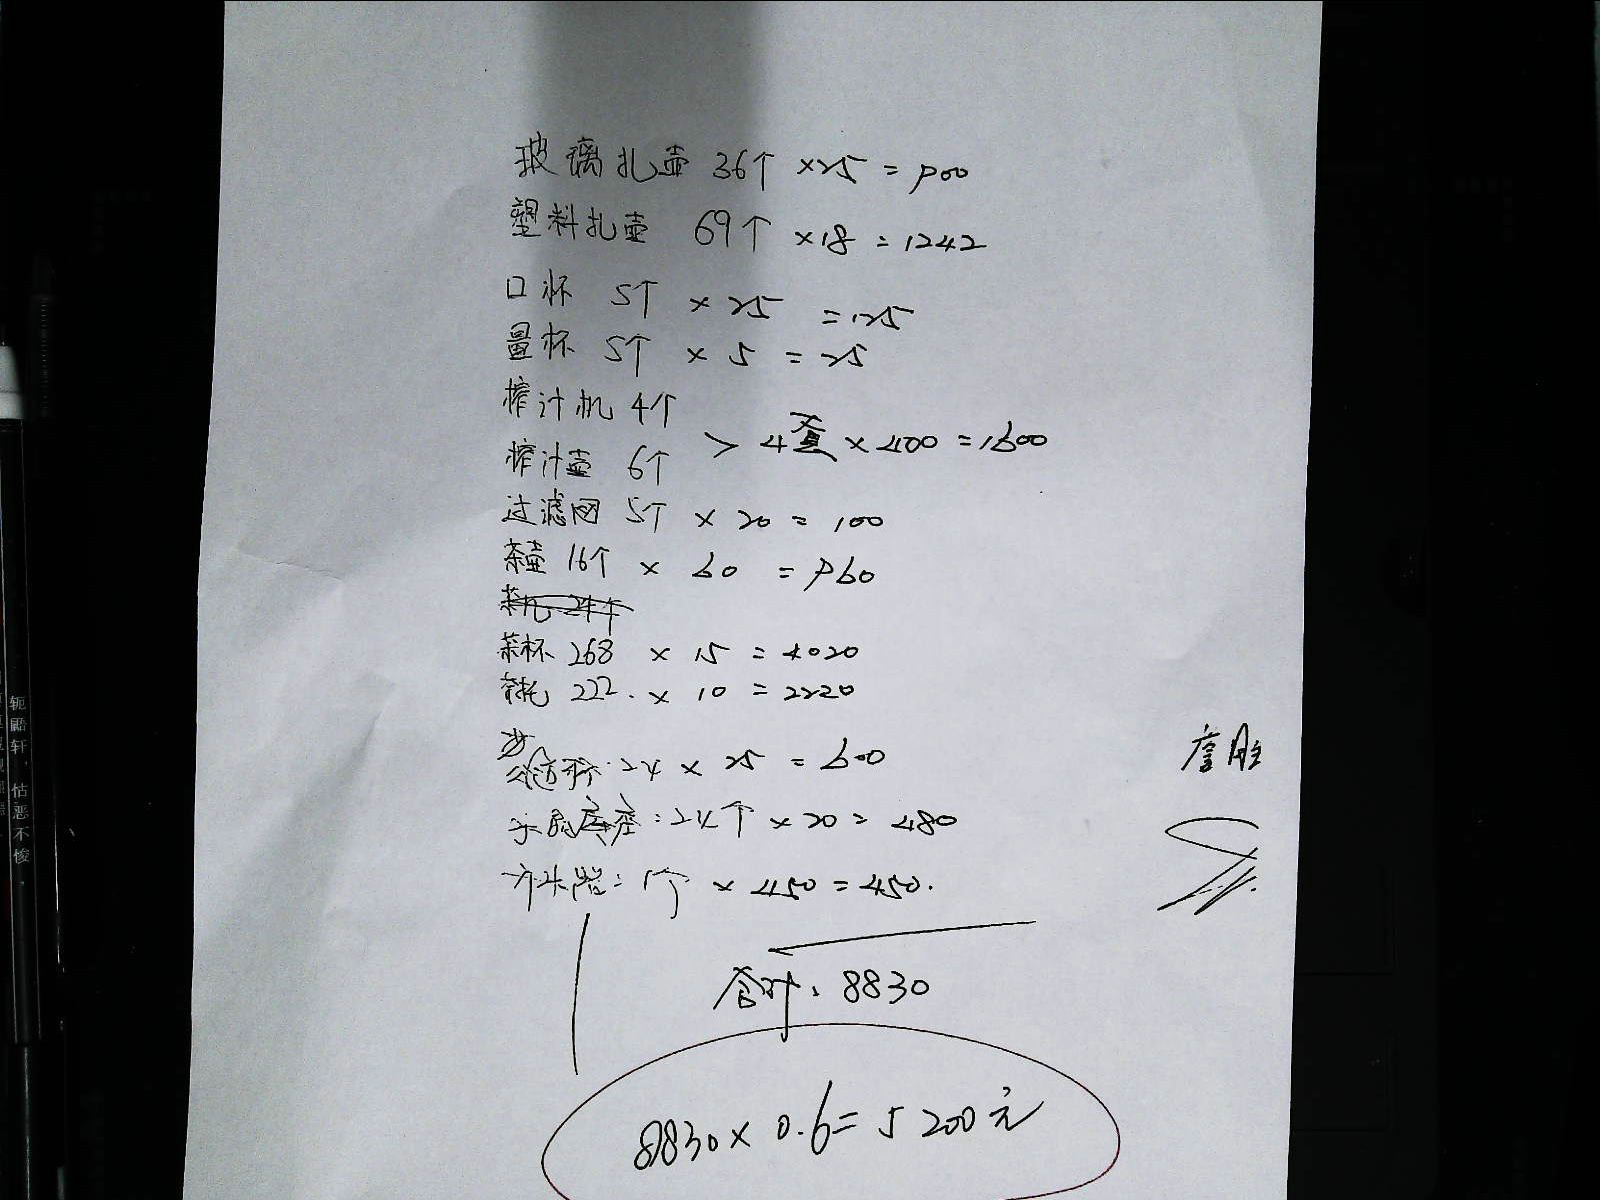 玻璃扎壶 36个 ×25 = 900
塑料扎壶 69个 ×18 = 1242
口杯 5个 × 25 = 125
量杯 5个 × 5 = 25
榨汁机 4个
> 4套 × 400 = 1600
榨汁壶 6个
过滤网 5个 × 20 = 100
茶壶 16个 × 60 = 960
茶杯 268 × 15 = 4020
222. × 10 = 2220
公道杯 · 24 × 25 = 600
底座 : 24个 × 20 = 480
1个 × 450 = 450.
合计: 8830
8830 × 0.6 = 5200元
轭
轩,
怙
恶
不
悛